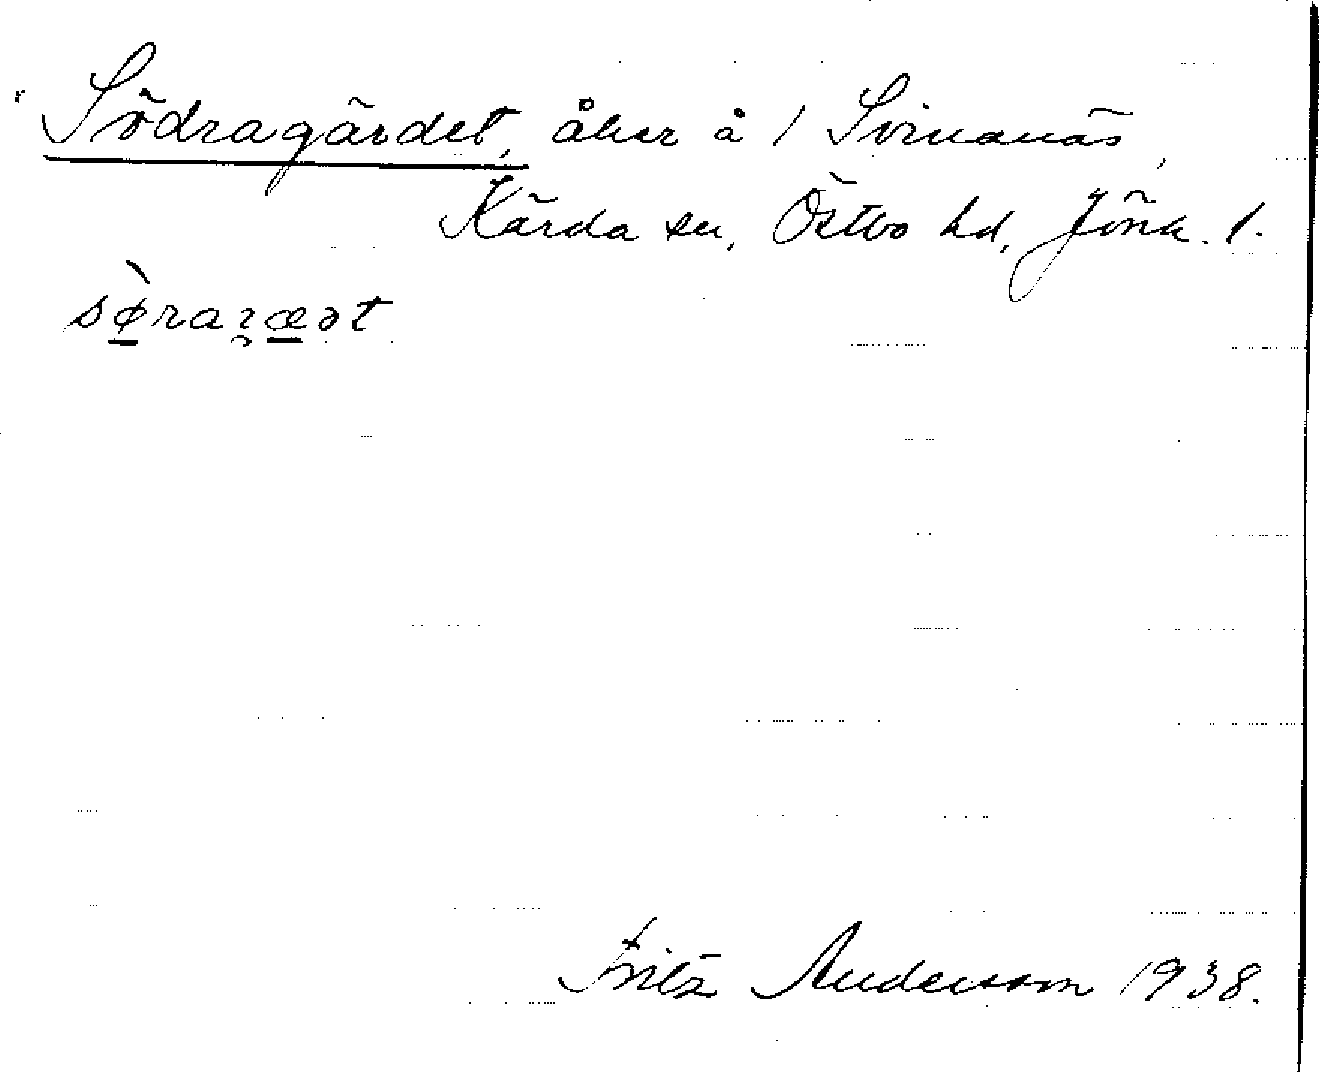 Södragärdet, åker å 1 Svinanäs,
Kärda sn, Östbo hd, Jönk. l.
sø̱̀raꝛæ̱ət
Fritz Andersson 1938.